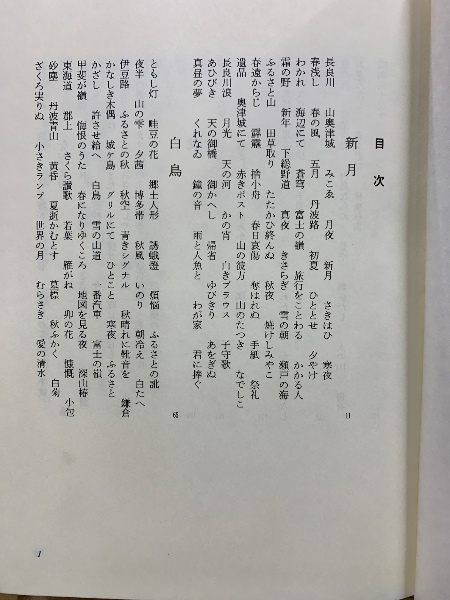 目次
新月
長良川　山奥津城　みこゑ　月夜　新月　さきはひ　寒夜
春浅し　春の風　五月　丹波路　初夏　ひととせ　夕やけ
わかれ　海辺にて　蒼穹　富士の嶺　旅行をことわる　かかる人
霜の野　新年　下総野道　真夜　きさらぎ　雪の朝　瀬戸の海
ふるさと山　田草取り　たたかひ終んぬ　秋夜　焼けしみやこ
春遠からじ　霹靂　捨小舟　春日哀傷　奪はれぬ　手紙　祭礼
遺品　奥津城にて　赤きポスト　山の彼方　山のたつき　なでしこ
長良川浪　月光　天の河　かの宵　白きブラウス　子守歌
あひびき　天の御橋　御かへし　帰省　ゆびきり　あをぎぬ
真昼の夢　くれなゐ　鐘の音　雨と人魚と　わが家　君に捧ぐ
11
白鳥
ともし灯　畦豆の花　郷土人形　誘蛾燈　煩悩　ふるさとの訛
夜半　山の雫　夕茜　博多帯　秋風　いのり　朝冷え　白たへ
伊豆路　ふるさとの秋　秋空　青きシグナル　秋晴れに靴音を　鎌倉
かなしき木偶　城ケ島　グリルにて　ひとこと　寒夜　ふるさと
かざし　許させ給へ　白鳥　雪の山道　一番汽車　富士の嶺
甲斐が嶺　悔恨のうた　春になりゆくころ　地図を見る夜　深山椿
東海道　郡上　さくら讃歌　若葉　雁がね　卯の花　慷慨　小包
砂塵　丹波青山　黄昏　夏逝かむとす　墓標　秋ふかく　白菊
ざくろ実りぬ　小さきランプ　世界の月　むらさき　愛の清水
65
1